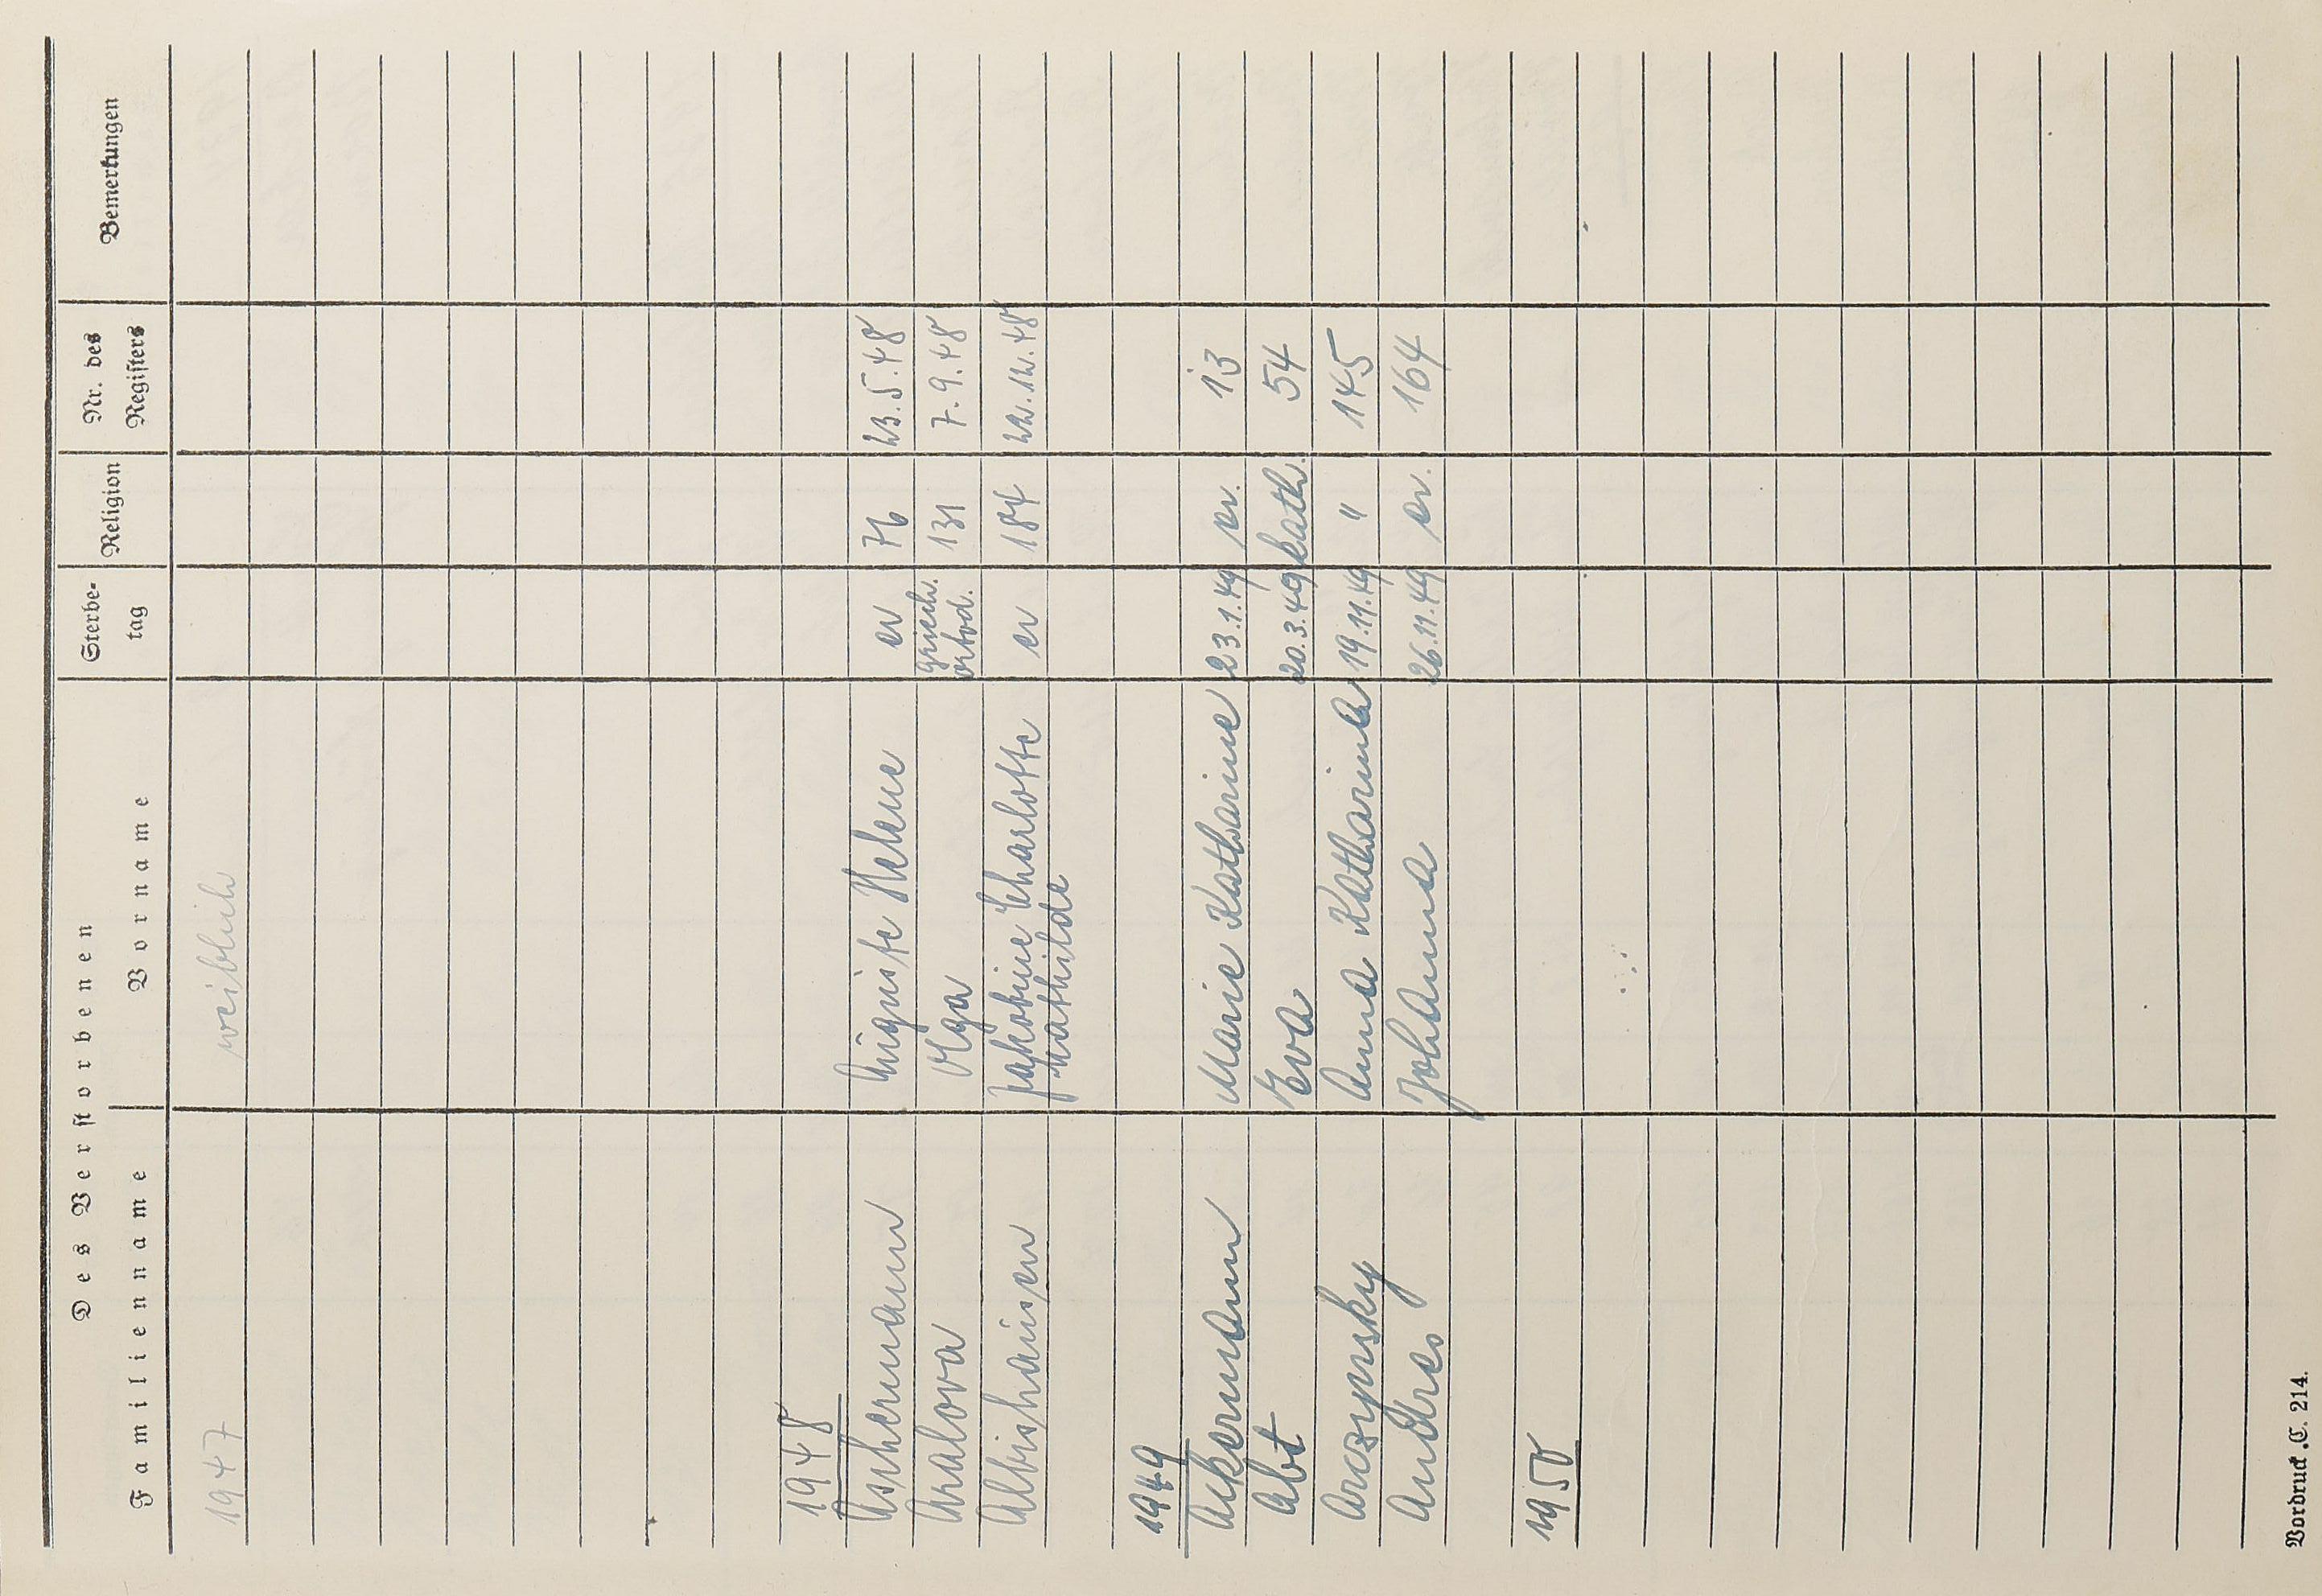 Des Verstorbenen
Familienname Vorname Sterbe-tag Religion Nr. des Registers Bemerkungen
1947 weiblich
1948
Aschermann Auguste Helene ev 76 23.5.48
Aralova Olga griech. ortod. 131 7.9.48
Albishausen Jakobine Charlotte ev 184 22.12.48
Mathilde
1949
Ackermann Marie Katharine 23.1.49 ev. 13
Abt Eva 20.3.49 kath. 54
Anna Katharina 19.11.49 " 145
Andres Johanna 26.11.49 ev. 164
1950
Vordruck C. 214.